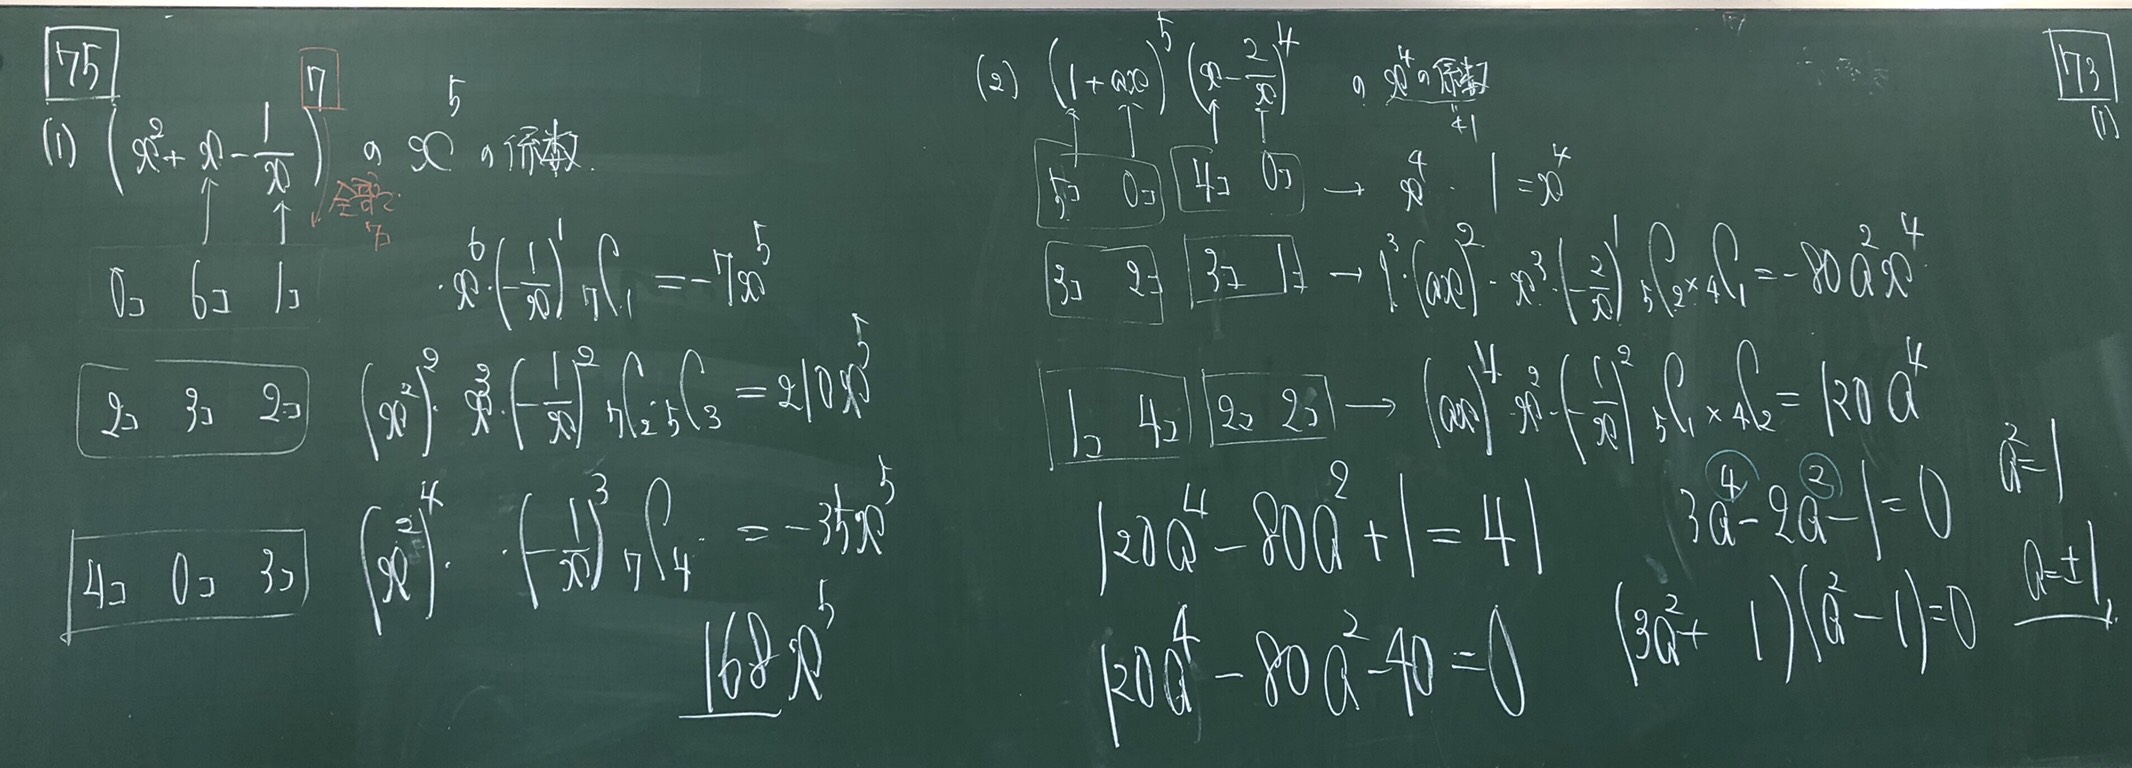 75
(1) (x²+x-1/x)⁷ の x⁵ の係数
全部で
7コ
0コ 6コ 1コ
x⁶·(-1/x)¹ ₇C₁ = -7x⁵
2コ 3コ 2コ
(x²)²·x³·(-1/x)² ₇C₂·₅C₃ = 210x⁵
4コ 0コ 3コ
(x²)⁴· ·(-1/x)³ ₇C₄ = -35x⁵
168x⁵
(2) (1+ax)⁵(x-2/x)⁴ の x⁴の係数
41
5コ 0コ 4コ 0コ → x⁴·1=x⁴
3コ 2コ 3コ 1コ → 1³·(ax)²·x³·(-2/x)¹ ₅C₂×₄C₁=-80a²x⁴
1コ 4コ 2コ 2コ → (ax)⁴·x²·(-1/x)² ₅C₁×₄C₂=120a⁴
120a⁴-80a²+1=41
120a⁴-80a²-40=0
3a⁴-2a²-1=0
(3a²+1)(a²-1)=0
a²=1
a=±1
73
(1)